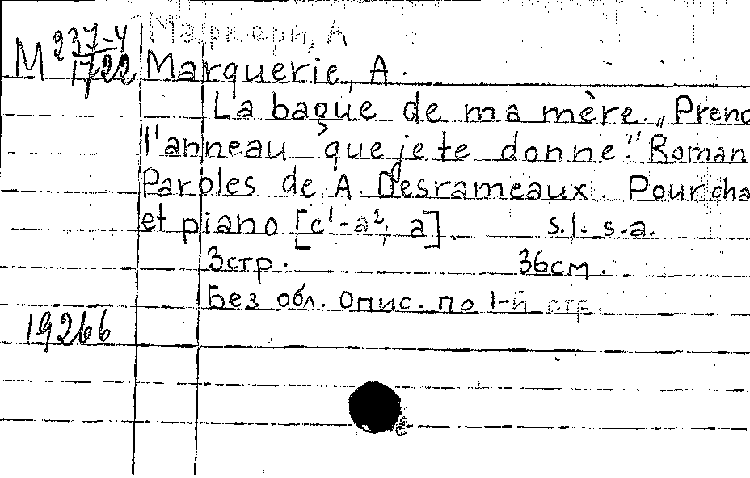 М 237-4 Маркери, А
1722 Marquerie, A.
La bague de ma mère. „Prend
l'anneau que je te donne." Roman
Paroles de A. Desrameaux. Pour cha
et piano [c¹-a²; a]. s.l. s.a.
3стр. 36см.
Без обл. Опис. по 1-й стр.
19266